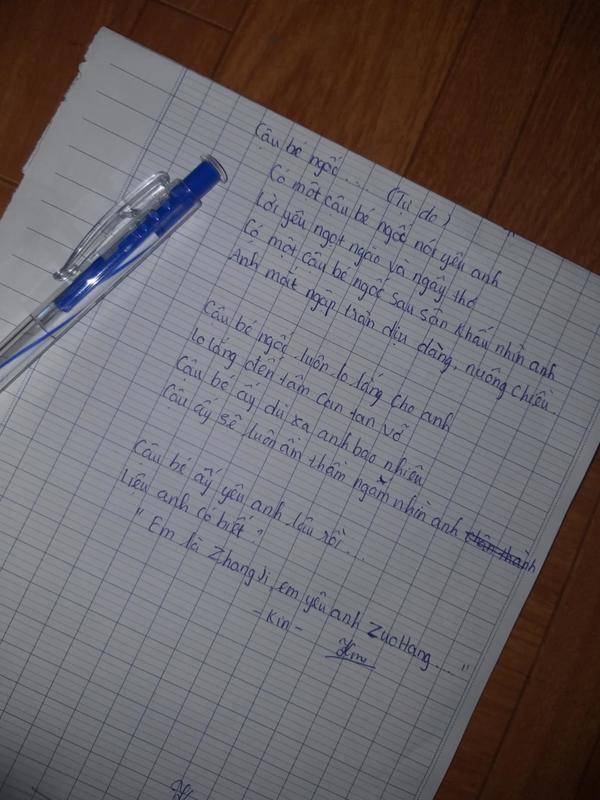 Cậu bé ngốc.... (Tự do)
Có một cậu bé ngốc nói yêu anh
Lời yêu ngọt ngào và ngây thơ
Có một cậu bé ngốc sau sân khấu nhìn anh
Ánh mắt ngập tràn dịu dàng, nuông chiều
Cậu bé ngốc luôn lo lắng cho anh
Lo lắng đến tâm can tan vỡ
Cậu bé ấy dù xa anh bao nhiêu
Cậu ấy sẽ luôn âm thầm ngắm nhìn anh
Cậu bé ấy yêu anh lâu rồi....
Liệu anh có biết?
" Em là Zhang Ji, em yêu anh ZuoHang....."
- Kin -